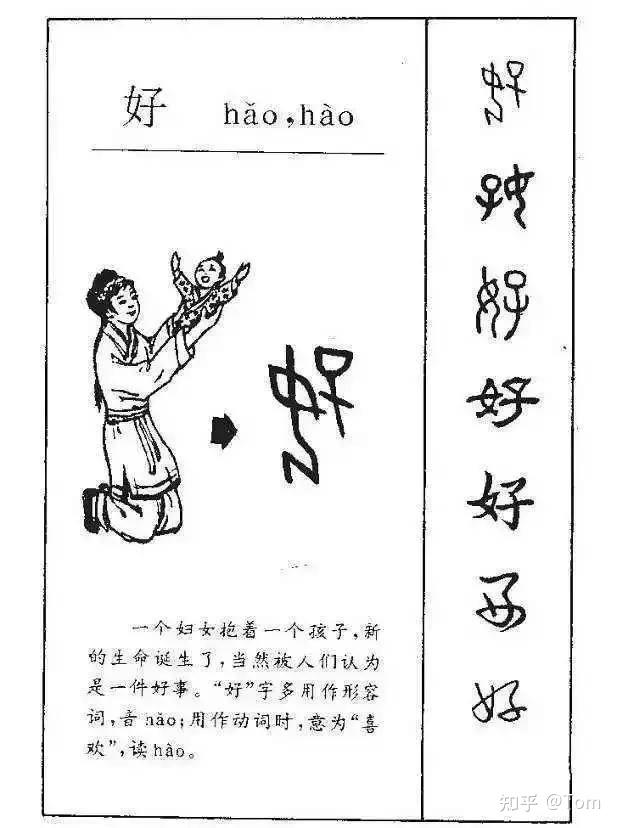 好 hǎo,hào
一个妇女抱着一个孩子，新
的生命诞生了，当然被人们认为
是一件好事。“好”字多用作形容
词，音nǎo；用作动词时，意为“喜
欢”，读hào。
好
好
好
好
好
好
好
知乎 @Tom